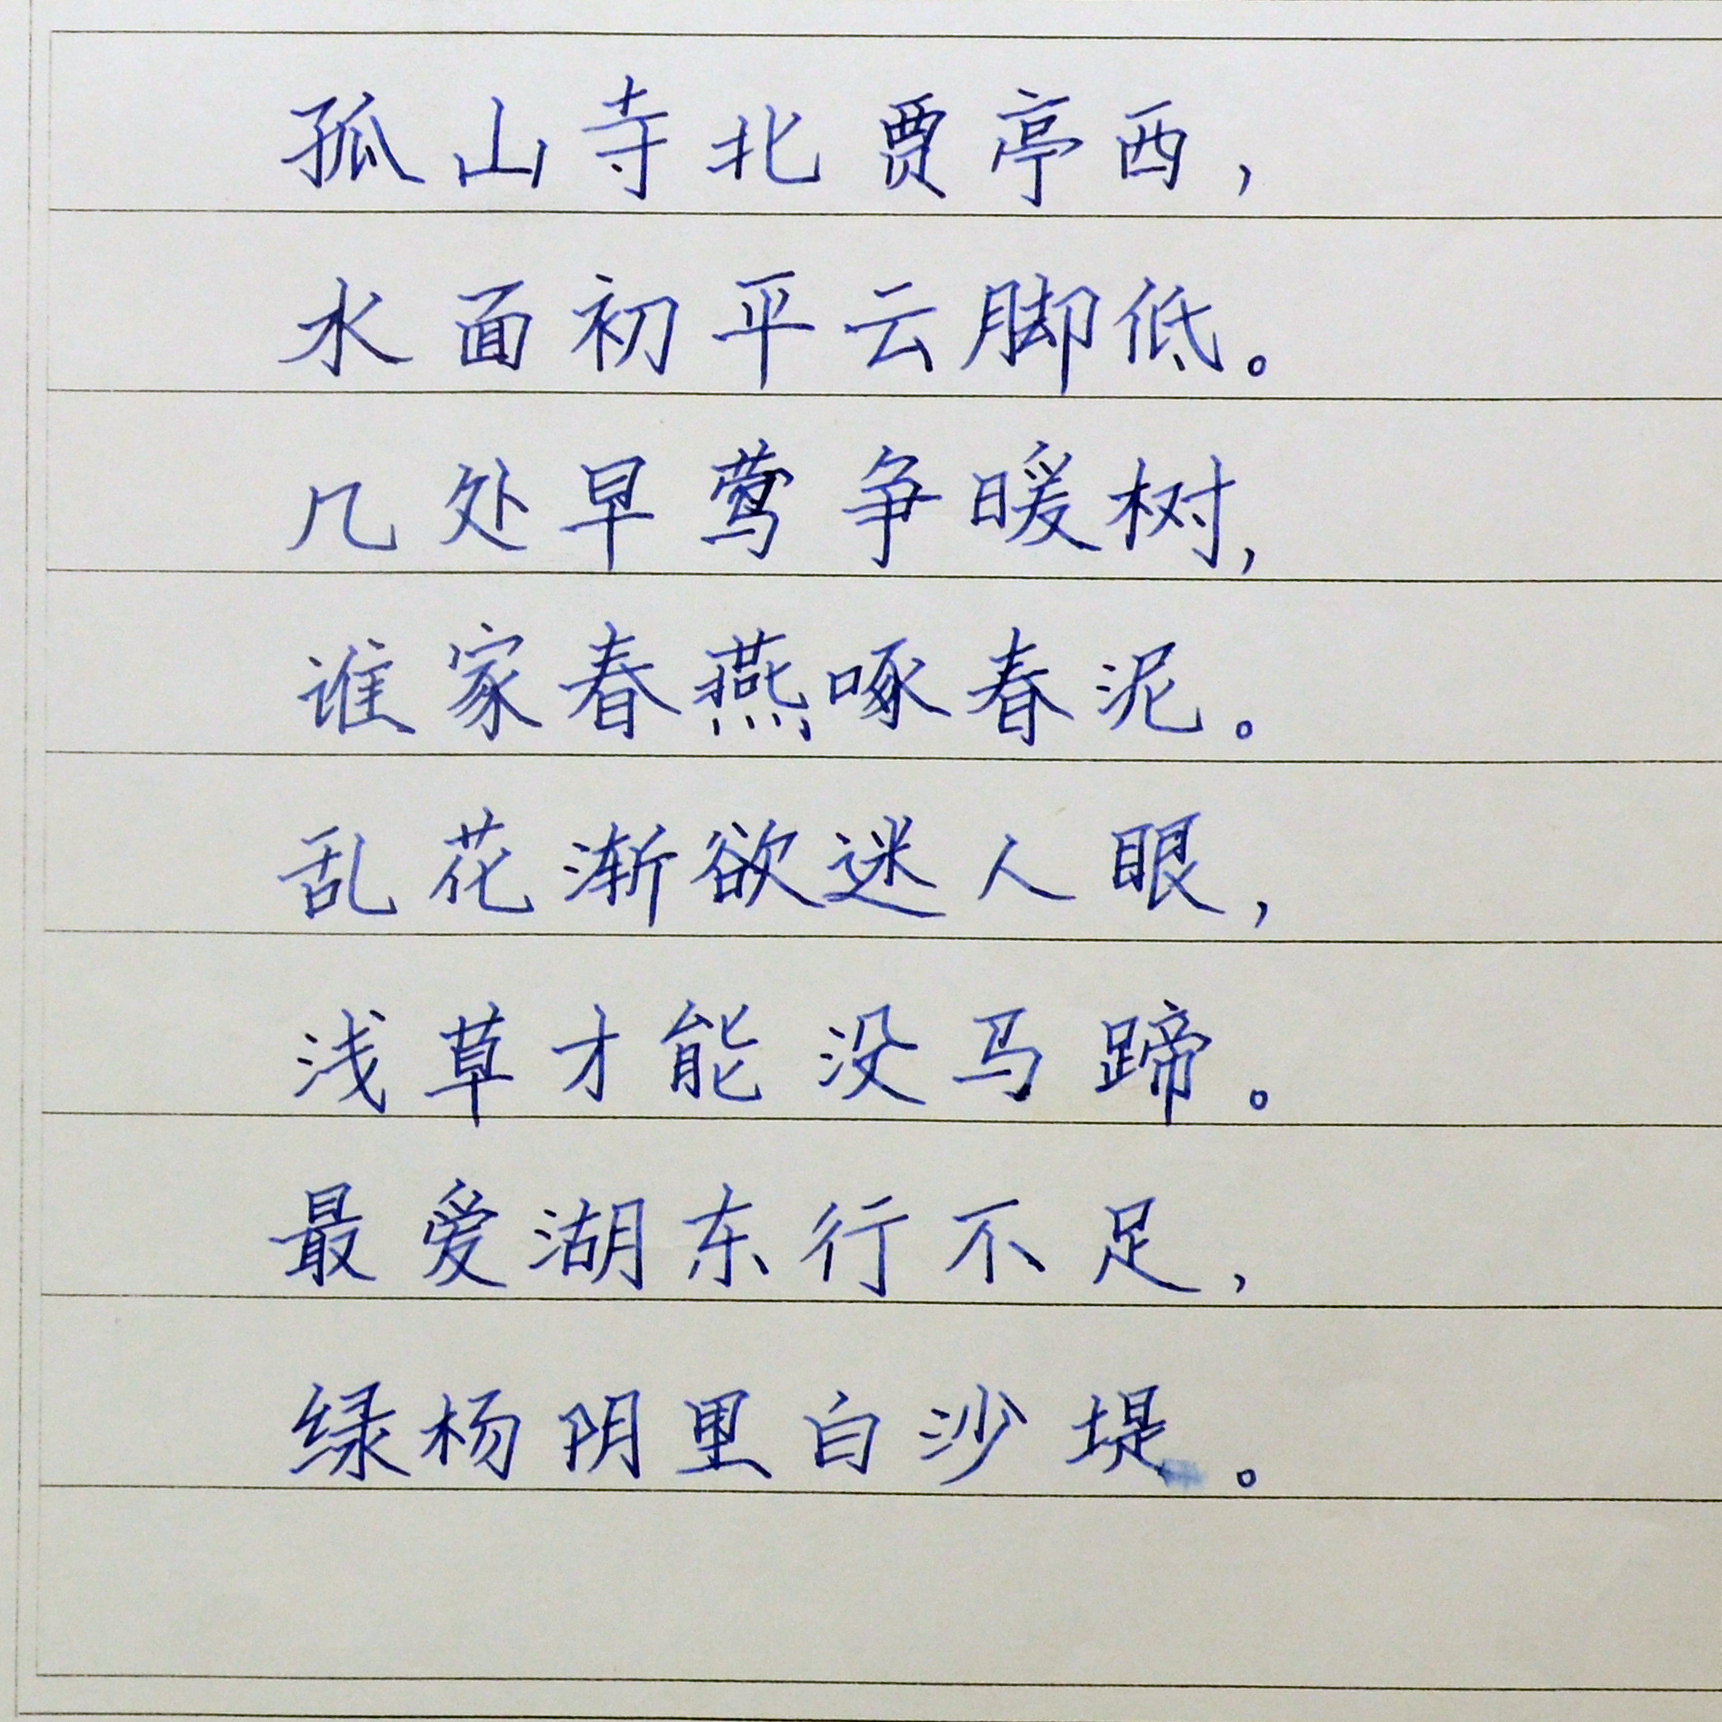 孤山寺北贾亭西，
水面初平云脚低。
几处早莺争暖树，
谁家春燕啄春泥。
乱花渐欲迷人眼，
浅草才能没马蹄。
最爱湖东行不足，
绿杨阴里白沙堤。